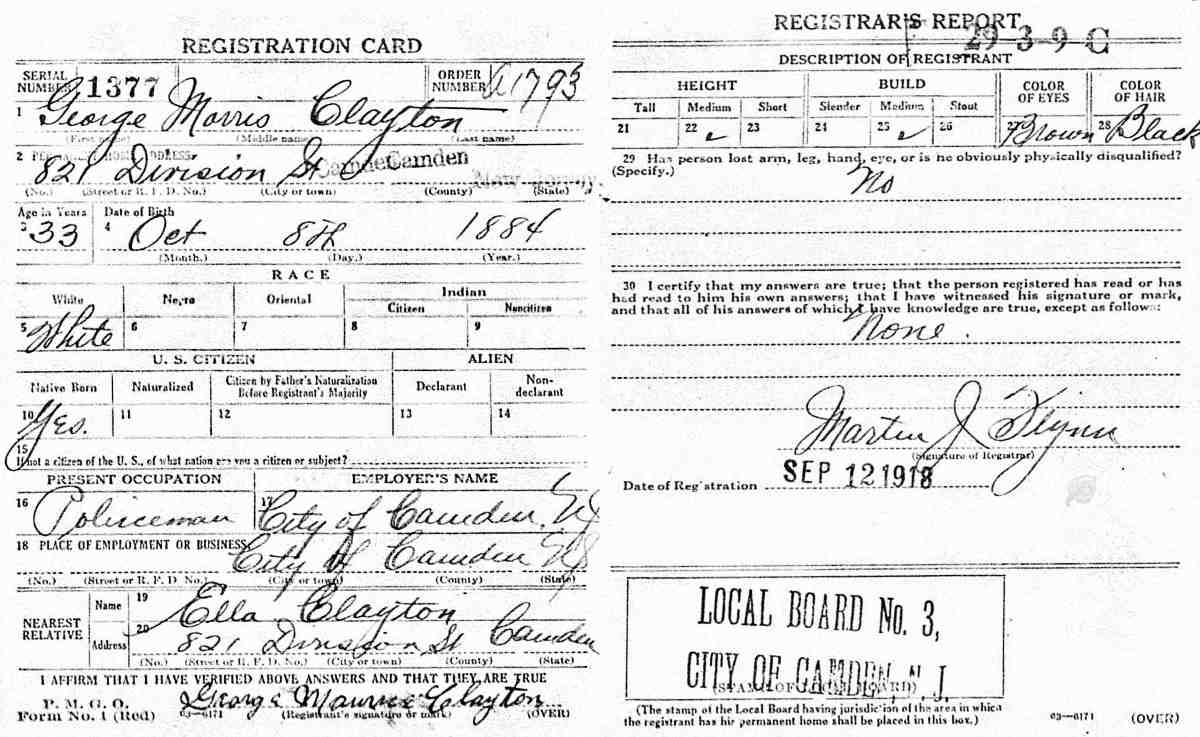 REGISTRATION CARD
SERIAL NUMBER 1377 ORDER NUMBER A1793
1 George Morris Clayton
(First name) (Middle name) (Last name)
2 PERMANENT HOME ADDRESS:
821 Division St Camden Camden New Jersey
(No.) (Street or R. F. D. No.) (City or town) (County) (State)
Age in Years Date of Birth
3 33 4 Oct 8th 1884
(Month.) (Day.) (Year.)
RACE
White Negro Oriental Indian
Citizen Noncitizen
5 White 6 7 8 9
U. S. CITIZEN ALIEN
Native Born Naturalized Citizen by Father's Naturalization Before Registrant's Majority Declarant Non-declarant
10 Yes. 11 12 13 14
15
If not a citizen of the U. S., of what nation are you a citizen or subject?
PRESENT OCCUPATION EMPLOYER'S NAME
16 Policeman 17 City of Camden, NJ
18 PLACE OF EMPLOYMENT OR BUSINESS:
City of Camden NJ
(No.) (Street or R. F. D. No.) (City or town) (County) (State)
NEAREST RELATIVE Name 19 Ella Clayton
Address 20 821 Division St Camden
(No.) (Street or R. F. D. No.) (City or town) (County) (State)
I AFFIRM THAT I HAVE VERIFIED ABOVE ANSWERS AND THAT THEY ARE TRUE
P. M. G. O.
Form No. 1 (Red) 03—6171 George Maurice Clayton
(Registrant's signature or mark) (OVER)
REGISTRAR'S REPORT
29-3-9 C
DESCRIPTION OF REGISTRANT
HEIGHT BUILD COLOR OF EYES COLOR OF HAIR
Tall Medium Short Slender Medium Stout
21 22 23 24 25 26 27 Brown 28 Black
29 Has person lost arm, leg, hand, eye, or is he obviously physically disqualified?
(Specify.) No
30 I certify that my answers are true; that the person registered has read or has
had read to him his own answers; that I have witnessed his signature or mark,
and that all of his answers of which I have knowledge are true, except as follows:
None.
Martin J Flynn
(Signature of Registrar)
Date of Registration SEP 12 1918
LOCAL BOARD No. 3,
CITY OF CAMDEN, N. J.
(STAMP OF LOCAL BOARD)
(The stamp of the Local Board having jurisdiction of the area in which
the registrant has his permanent home shall be placed in this box.)
03—6171 (OVER)